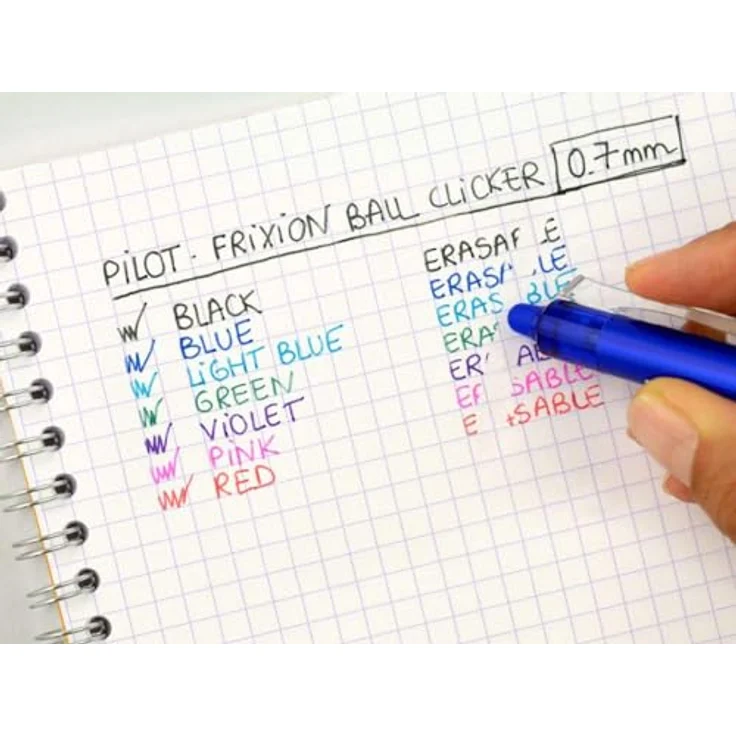 PiLOT · FRiXiON BALL CLiCKER 0.7mm
BLACK
BLUE
LiGHT BLUE
GREEN
ViOLET
PiNK
RED
ERASA E
ERAS LE
ERAS BLE
ERA
ER AB
E SABLE
E SABLE